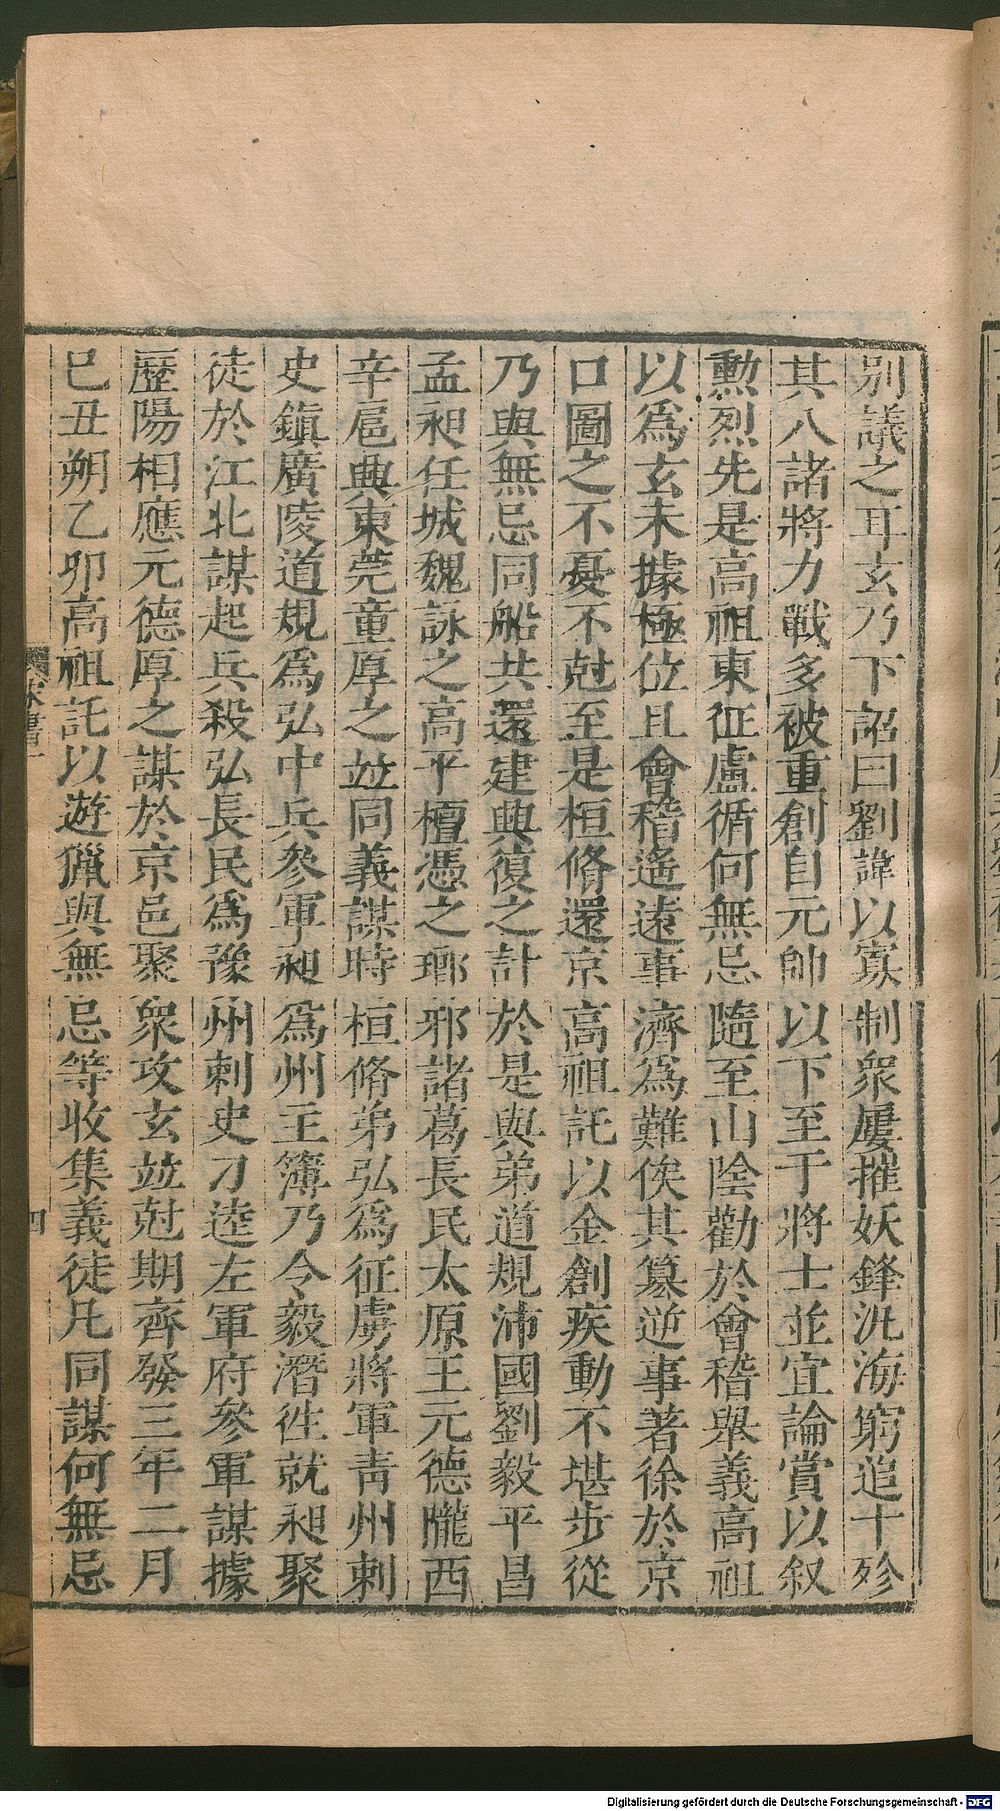 別議之耳玄乃下詔曰劉諱以寡制衆屢摧妖鋒汎海窮追十殄
其八諸將力戰多被重創自元帥以下至于將士並宜論賞以叙
勲烈先是高祖東征盧循何無忌隨至山陰勸於會稽舉義高祖
以爲玄未據極位且會稽遙遠事濟爲難俟其篡逆事著徐於京
口圖之不憂不尅至是桓脩還京高祖託以金創疾動不堪步從
乃與無忌同船共還建興復之計於是與弟道規沛國劉毅平昌
孟昶任城魏詠之高平檀憑之瑯邪諸葛長民太原王元德隴西
辛扈興東莞童厚之竝同義謀時桓脩弟弘爲征虜將軍青州刺
史鎮廣陵道規爲弘中兵參軍昶爲州主簿乃令毅潛徃就昶聚
徒於江北謀起兵殺弘長民爲豫州刺史刁逵左軍府參軍謀據
歷陽相應元德厚之謀於京邑聚衆攻玄竝尅期齊發三年二月
巳丑朔乙卯高祖託以遊獵與無忌等收集義徒凡同謀何無忌
宋書一
四
Digitalisierung gefördert durch die Deutsche Forschungsgemeinschaft - DFG